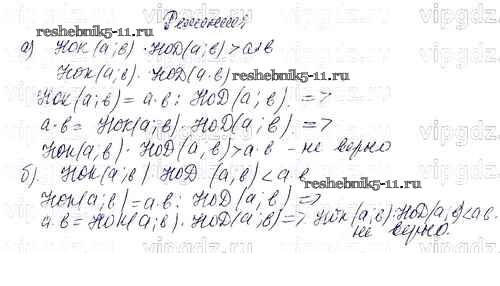 Решение:
reshebnik5-11.ru
а) Нок(а;в)·НоД(а;в)>а·в
Нок(а;в)·НоД(а·в)
reshebnik5-11.ru
Нок(а;в)=а·в:НоД(а;в). =>
а·в=Нок(а;в)·НоД(а;в). =>
Нок(а;в)·НоД(а,в)>а·в - не верно
б). Нок(а;в)·НоД(а;в)<а·в
reshebnik5-11.ru
Нок(а;в)=а.в:НоД(а;в) =>
а·в=Нок(а;в).НоД(а;в)=>Нок(а;в).НоД(а;в)<а.в.
не верно.
vipgdz.ru